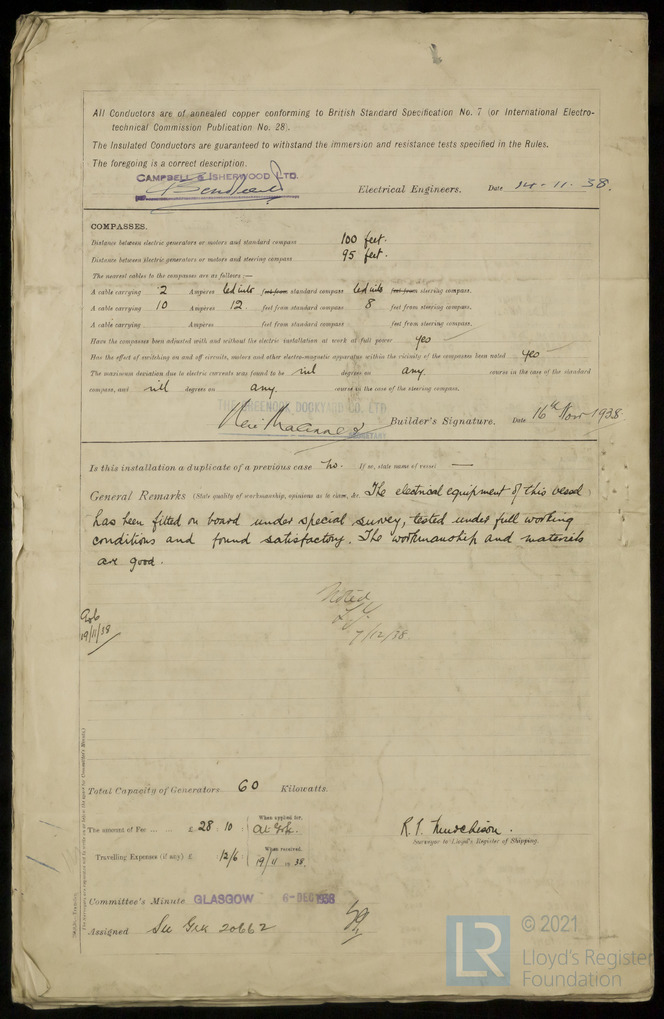 All Conductors are of annealed copper conforming to British Standard Specification No. 7 (or International Electro-
technical Commission Publication No. 28).
The Insulated Conductors are guaranteed to withstand the immersion and resistance tests specified in the Rules.
The foregoing is a correct description.
CAMPBELL & ISHERWOOD LTD.
Electrical Engineers. Date 14-11-38.
COMPASSES.
Distance between electric generators or motors and standard compass 100 feet.
Distance between electric generators or motors and steering compass 95 feet.
The nearest cables to the compasses are as follows:—
A cable carrying 2 Amperes led into feet from standard compass led into feet from steering compass.
A cable carrying 10 Amperes 12 feet from standard compass 8 feet from steering compass.
A cable carrying Amperes feet from standard compass feet from steering compass.
Have the compasses been adjusted with and without the electric installation at work at full power yes
Has the effect of switching on and off circuits, motors and other electro-magnetic apparatus within the vicinity of the compasses been noted yes
The maximum deviation due to electric currents was found to be nil degrees on any. course in the case of the standard
compass, and nil degrees on any. course in the case of the steering compass.
THE GREENOCK DOCKYARD CO. LTD.
Builder's Signature. Date 16th Nov 1938
Is this installation a duplicate of a previous case no. If so, state name of vessel —
General Remarks (State quality of workmanship, opinions as to class, &c. The electrical equipment of this vessel
has been fitted on board under special survey, tested under full working
conditions and found satisfactory. The workmanship and materials
are good.
Noted
7/12/38.
19/11/38
Total Capacity of Generators 60 Kilowatts.
The amount of Fee ... ... £ 28 : 10 : When applied for,
Travelling Expenses (if any) £ 12/6 : When received,
19/11 38.
R. T. Murchison.
Surveyor to Lloyd's Register of Shipping.
Committee's Minute GLASGOW 6-DEC 1938
Assigned See Grk 20662
© 2021
LR Lloyd's Register
Foundation